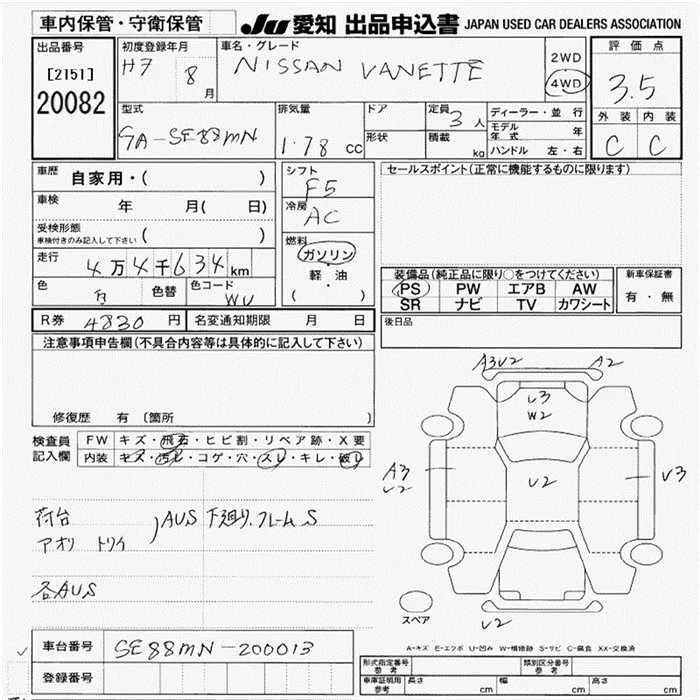 車内保管・守衛保管
JU 愛知 出品申込書 JAPAN USED CAR DEALERS ASSOCIATION
出品番号
[2151]
20082
初度登録年月
H7 8 月
車名・グレード
NISSAN VANETTE
2WD
4WD
評価点
3.5
外装 内装
C C
型式
GA-SE88MN
排気量
1.78 cc
ドア
形状
定員
3 人
積載
kg
ディーラー・並行
モデル年式 年
ハンドル 左・右
車歴
自家用・( )
車検
年 月( 日)
受検形態
車検付きのみ記入して下さい ( )
走行
4万4千634km
色
白
色替
色コード
WU
シフト
F5
冷房
AC
燃料
ガソリン
軽・油
( )
セールスポイント(正常に機能するものに限ります)
装備品(純正品に限り○をつけてください)
PS PW エアB AW
SR ナビ TV カワシート
新車保証書
有・無
R券 4830 円
名変通知期限 月 日
後日品
注意事項申告欄(不具合内容等は具体的に記入して下さい)
修復歴 有 〔箇所 〕
検査員記入欄
FW キズ・飛石・ヒビ割・リペア跡・X要
内装 キズ・汚レ・コゲ・穴・スレ・キレ・破レ
荷台
アオリ トリイ
)AUS 下廻り、フレームS
各AUS
A3V2 A2
U3
W2
A3
U2
U2
V3
U2
スペア
A-キズ E-エクボ U-凹み W-補修跡 S-サビ C-腐食 XX-交換済
車台番号 SE88MN-200013
登録番号
形式指定番号
参考
類別区分番号
参考
車庫証明用
参考
長さ cm 幅 cm 高さ cm